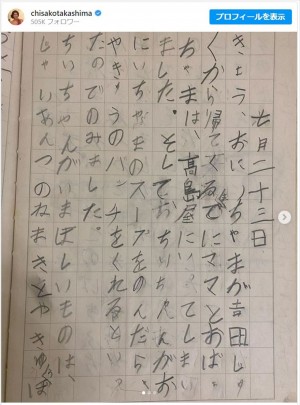 chisakotakashima
505K フォロワー
プロフィールを表示
七月二十三日
きょう、おにいちゃまが吉田じゅ
くから帰てくるまでにママとおばあ
ちゃまは、高島屋にい
ました。そしてちいちゃんがお
にいちゃまのスープをのんだら
やきゅうのバンチをくれるとい
たのでのみました。
ちいちゃんがいまほしいものは、
じゃいあんつのねまきとやきゅうぼ